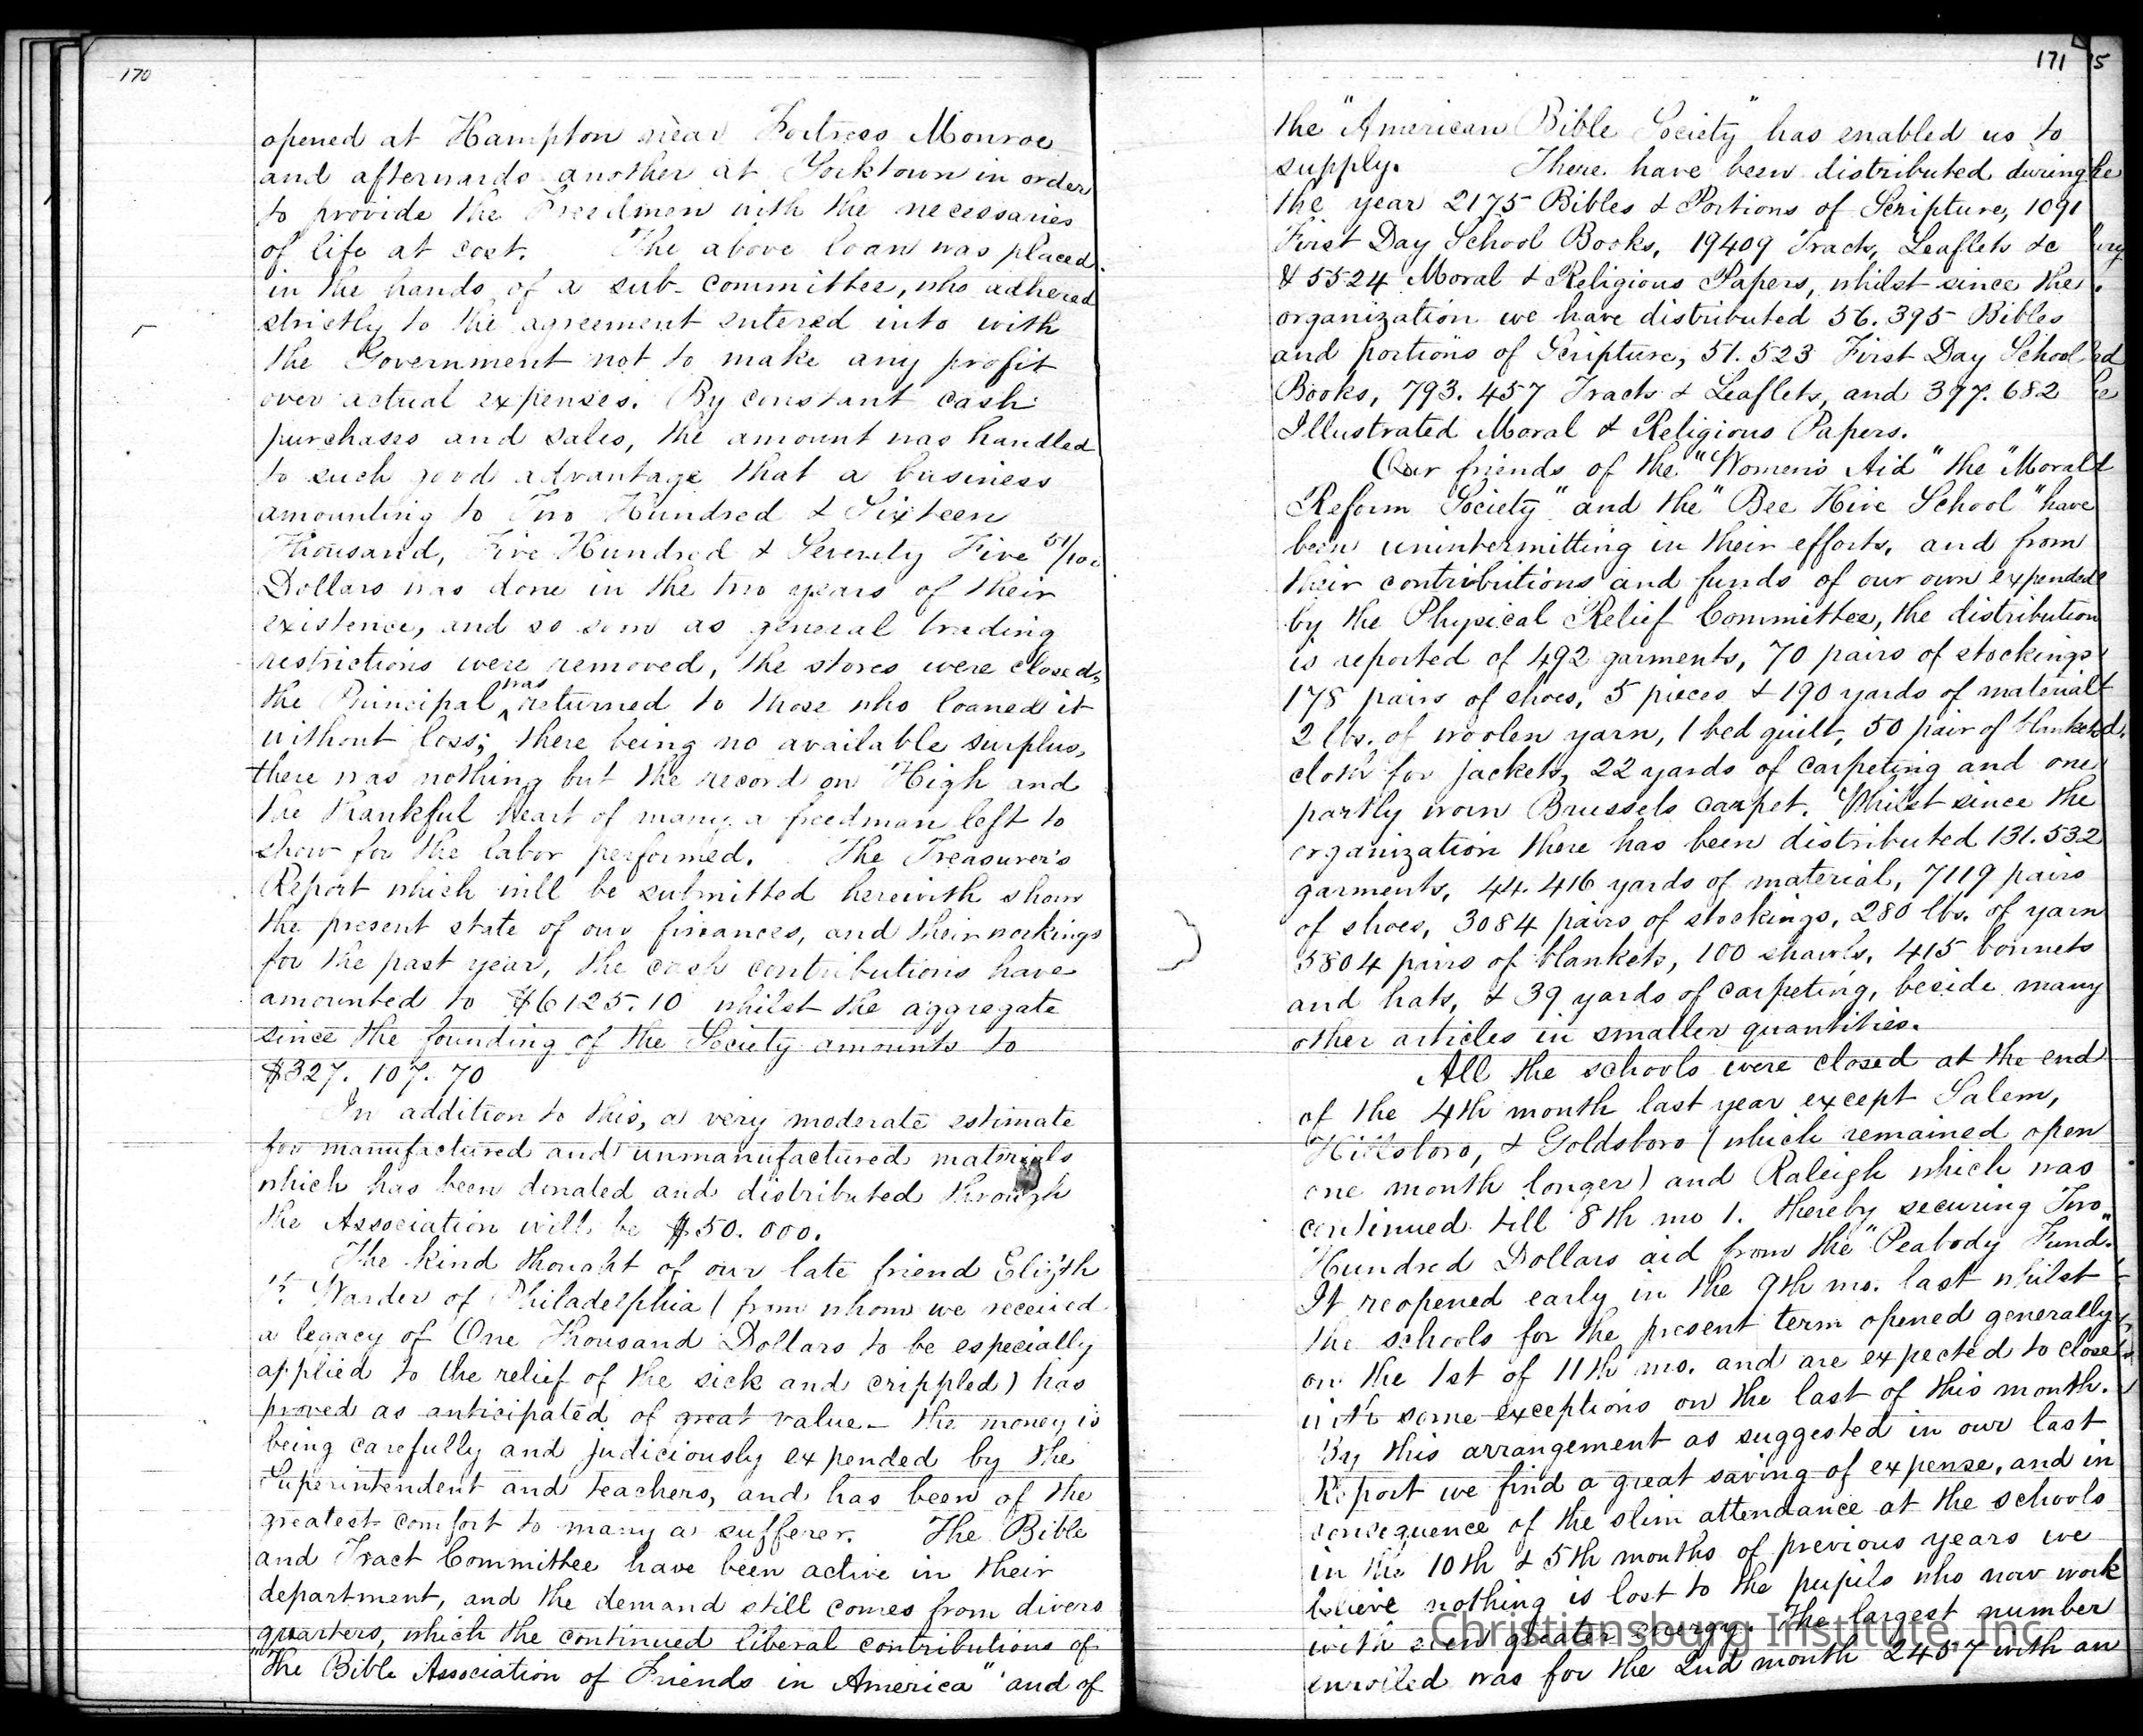 170
opened at Hampton near Fortress Monroe
and afterwards another at Yorktown in order
to provide the Freedmen with the necessaries
of life at cost. The above loan was placed
in the hands of a sub-committee, who adhered
strictly to the agreement entered into with
the Government not to make any profit
over actual expenses. By constant cash
purchases and sales, the amount was handled
to such good advantage that a business
amounting to Two Hundred & Sixteen
Thousand, Five Hundred & Seventy Five 51/100
Dollars was done in the two years of their
existence, and so soon as general trading
restrictions were removed, the stores were closed,
the Principal was returned to those who loaned it
without loss; there being no available surplus,
there was nothing but the record on High and
the thankful heart of many a freedman left to
show for the labor performed. The Treasurer's
Report which will be submitted herewith show
the present state of our finances, and their workings
for the past year, the cash contributions have
amounted to $6125.10 whilst the aggregate
since the founding of the Society amounts to
$327.107.70
In addition to this, a very moderate estimate
for manufactured and unmanufactured materials
which has been donated and distributed through
the Association will be $50.000.
The kind thought of our late friend Eliz'th
Warder of Philadelphia (from whom we received
a legacy of One Thousand Dollars to be especially
applied to the relief of the sick and crippled) has
proved as anticipated of great value - the money is
being carefully and judiciously expended by the
Superintendent and teachers, and has been of the
greatest comfort to many a sufferer. The Bible
and Tract Committee have been active in their
department, and the demand still comes from divers
quarters, which the continued liberal contributions of
"The Bible Association of Friends in America" and of
171
the "American Bible Society" has enabled us to
supply. There have been distributed during
the year 2175 Bibles & Portions of Scripture, 1091
First Day School Books, 19409 Tracts, Leaflets &c
& 5524 Moral & Religious Papers, whilst since the
organization we have distributed 56.395 Bibles
and portions of Scripture, 51.523 First Day School
Books, 793.457 Tracts & Leaflets, and 397.682
Illustrated Moral & Religious Papers.
Our friends of the "Women's Aid" the "Moral
Reform Society" and the "Bee Hive School" have
been unintermitting in their efforts, and from
their contributions and funds of our own expended
by the Physical Relief Committee, the distribution
is reported of 492 garments, 70 pairs of stockings
178 pairs of shoes, 5 pieces & 190 yards of material
2 lbs. of woolen yarn, 1 bed quilt, 50 pair of blankets
cloth for jackets, 22 yards of carpeting and one
partly worn Brussels carpet. Whilst since the
organization there has been distributed 131.532
garments, 44.416 yards of material, 7119 pairs
of shoes, 3084 pairs of stockings, 280 lbs. of yarn
5804 pairs of blankets, 100 shawls, 415 bonnets
and hats, & 39 yards of carpeting, beside many
other articles in smaller quantities.
All the schools were closed at the end
of the 4th month last year except Salem,
Hillsboro, & Goldsboro (which remained open
one month longer) and Raleigh which was
continued till 8th mo 1. thereby securing Two
Hundred Dollars aid from the "Peabody Fund."
It reopened early in the 9th mo. last whilst
the schools for the present term opened generally
on the 1st of 11th mo. and are expected to close
with some exceptions on the last of this month.
By this arrangement as suggested in our last
Report we find a great saving of expense, and in
consequence of the slim attendance at the schools
in the 10th & 5th months of previous years we
believe nothing is lost to the pupils who now work
with even greater energy. The largest number
enrolled was for the 2nd month 2457 with an
Christiansburg Institute, Inc.